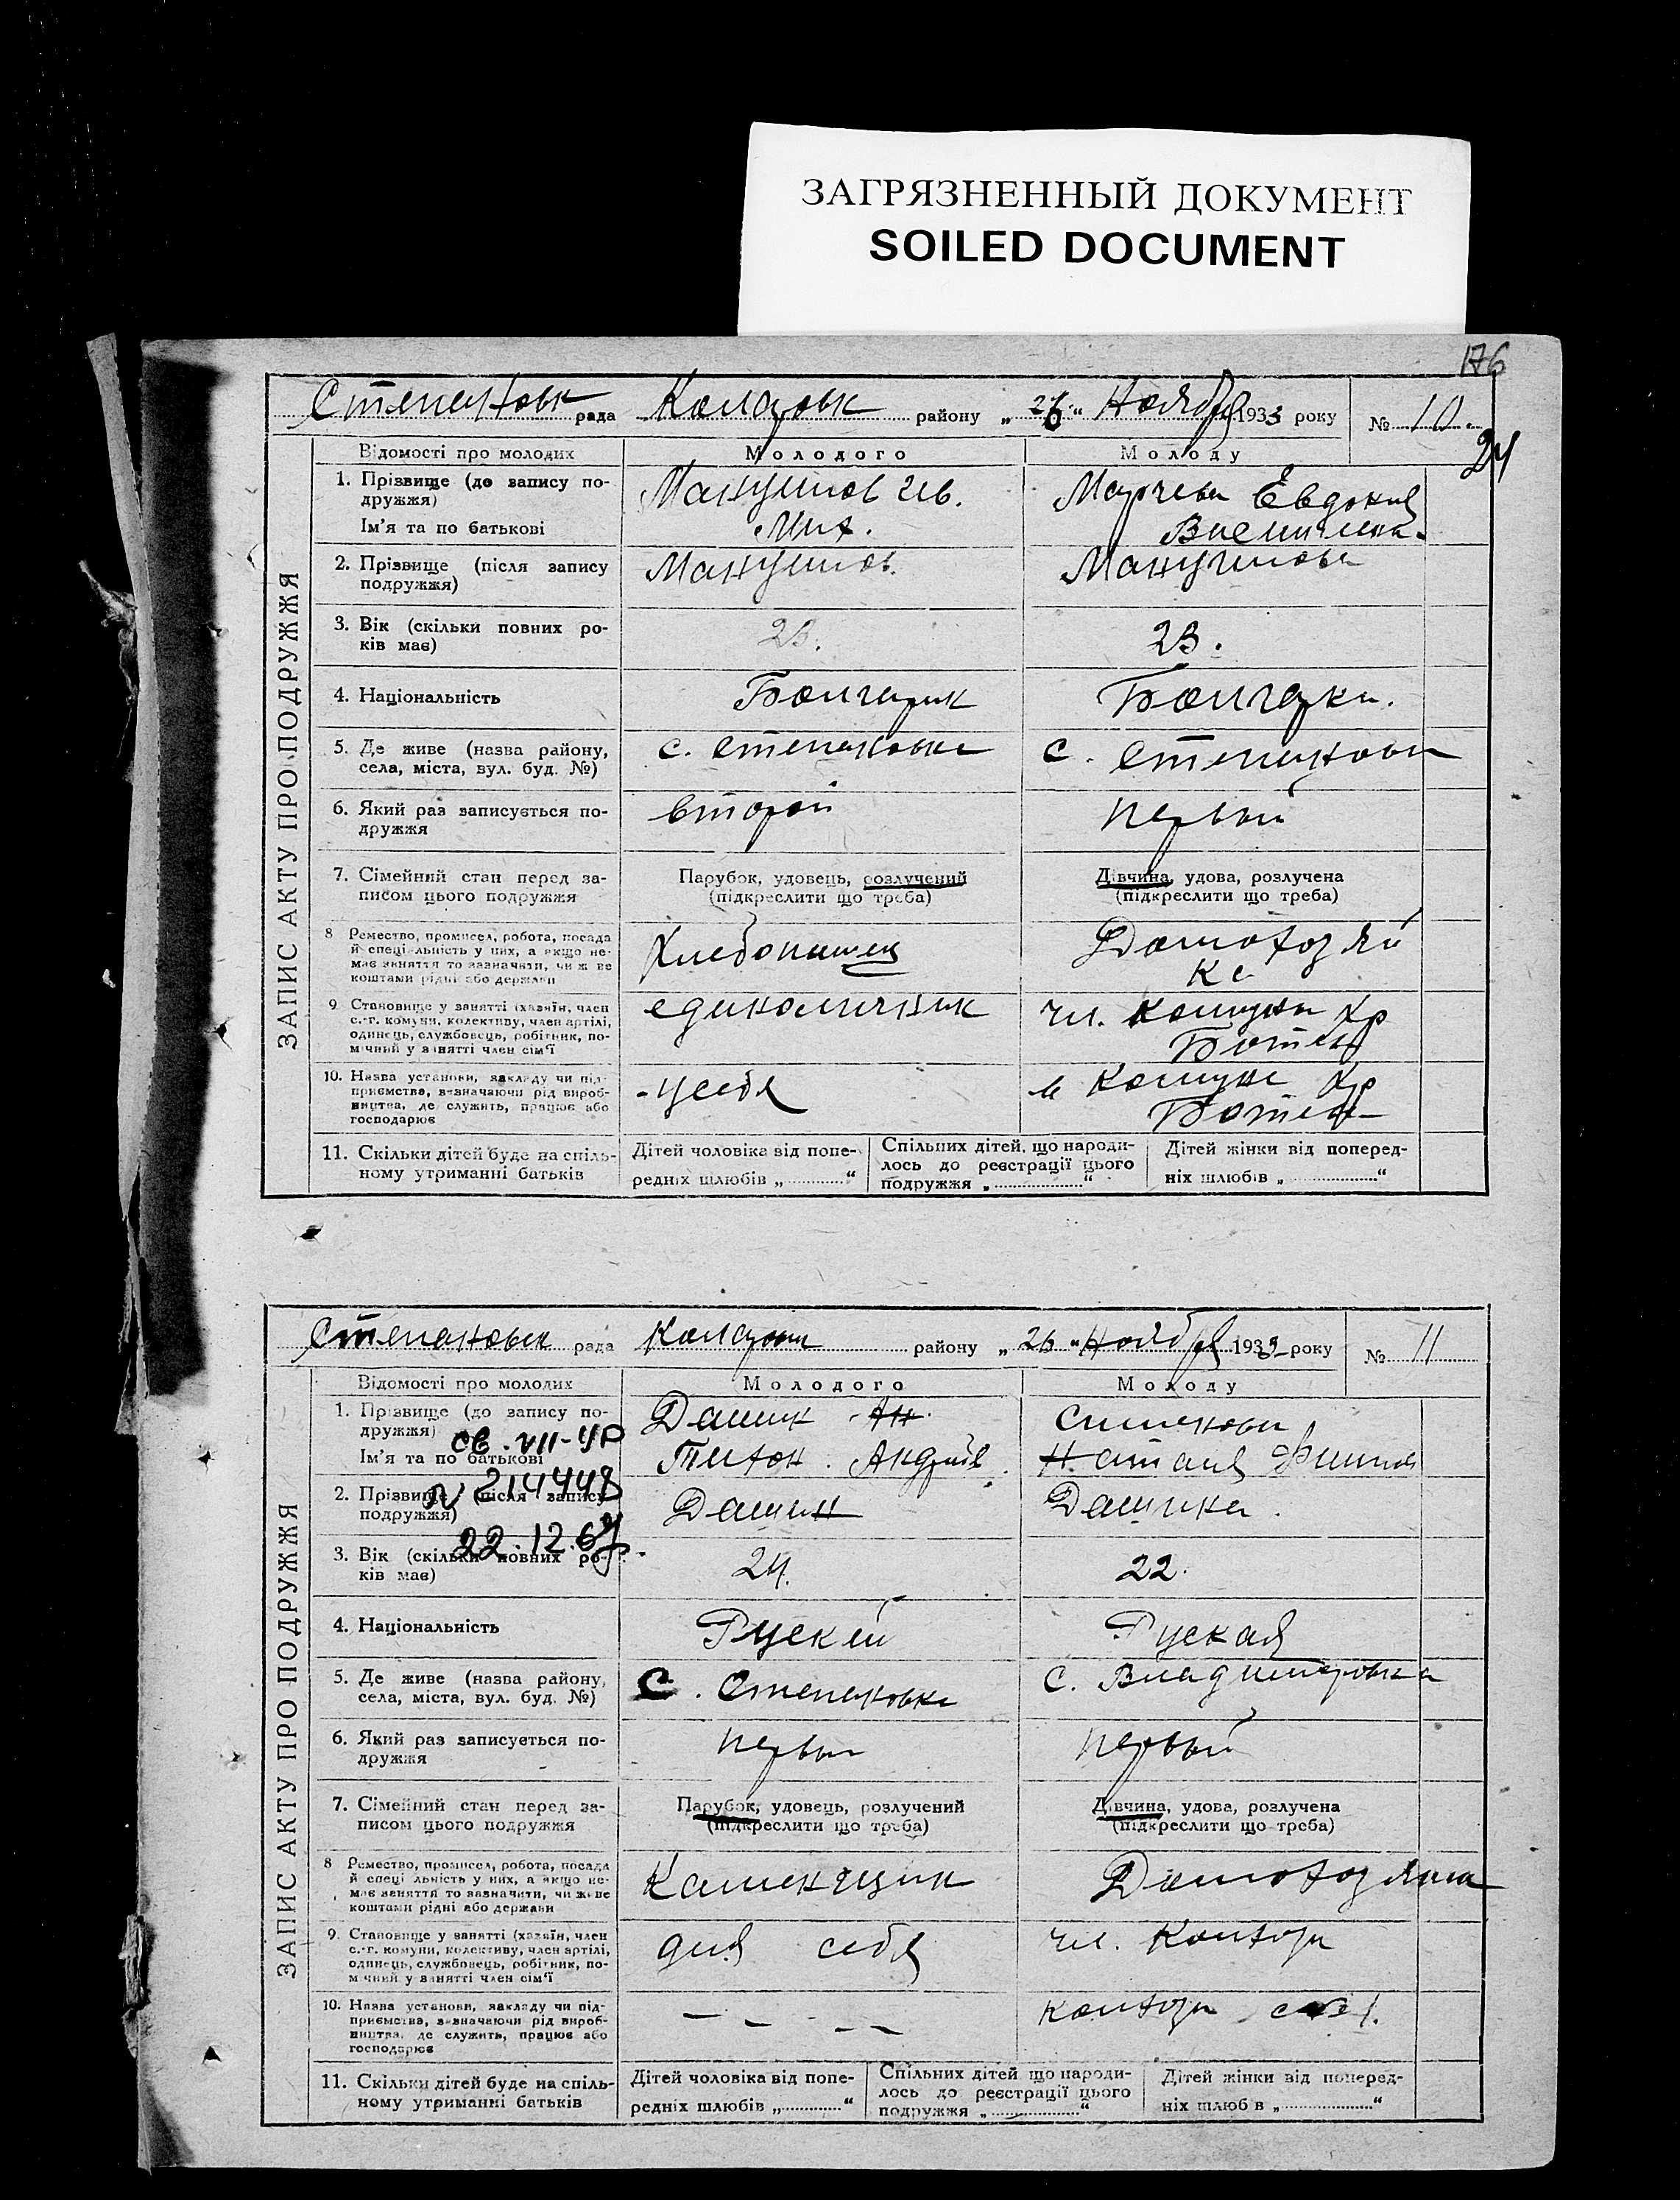 ЗАГРЯЗНЕННЫЙ ДОКУМЕНТ
SOILED DOCUMENT
176
Степановск рада Коларовск району „26“ Ноября 1933 року № 10.
24
ЗАПИС АКТУ ПРО ПОДРУЖЖЯ
Відомості про молодих Молодого Молоду
1. Прізвище (до запису по-
дружжя)
Ім'я та по батькові
Манушов Ив.
Мих.
Евдокия
2. Прізвище (після запису
подружжя)
Манушов. Манушова
3. Вік (скільки повних ро-
ків має)
23. 23.
4. Національність
Болгарик Болгарка.
5. Де живе (назва району,
села, міста, вул. буд. №)
с. Степановка с. Степановка
6. Який раз записується по-
дружжя
второй первый
7. Сімейний стан перед за-
писом цього подружжя
Парубок, удовець, розлучений
(підкреслити що треба)
Дівчина, удова, розлучена
(підкреслити що треба)
8 Ремество, промисел, робота, посада
й спеціальність у них, а якщо не-
має заняття то зазначити, чи ж не
коштами рідні або держави
Хлебопашец
Домохозяй
ка
9. Становище у занятті (хазяїн, член
с.-г. комуни, колективу, член артілі,
одинець, службовець, робітник, по-
мічний у занятті член сім'ї
единоличник
чл. Комуни Хр
Ботева
10. Назва установи, закладу чи під-
приємства, зазначаючи рід вироб-
ництва, де служить, працює або
господарює
- у себя
в Комуне Хр
Ботева
11. Скільки дітей буде на спіль-
ному утриманні батьків
Дітей чоловіка від попе-
редніх шлюбів „..........“
Спільних дітей, що народи-
лось до реєстрації цього
подружжя „..........“
Дітей жінки від поперед-
ніх шлюбів „..........“
Степановск рада Коларовск району „26“ Ноября 1933 року № 11
ЗАПИС АКТУ ПРО ПОДРУЖЖЯ
Відомості про молодих Молодого Молоду
1. Прізвище (до запису по-
дружжя)
Ім'я та по батькові
Дашин Ан.
Тихон. Андрієв.
Симекова
Наталя Филип
св. VII-УР
№ 214448
22.12.67.
2. Прізвище (після запису
подружжя)
Дашин Дашина.
3. Вік (скільки повних ро-
ків має)
24. 22.
4. Національність
Руский Руская
5. Де живе (назва району,
села, міста, вул. буд. №)
С. Степановка с. Владимировка
6. Який раз записується по-
дружжя
первый первый
7. Сімейний стан перед за-
писом цього подружжя
Парубок, удовець, розлучений
(підкреслити що треба)
Дівчина, удова, розлучена
(підкреслити що треба)
8 Ремество, промисел, робота, посада
й спеціальність у них, а якщо не-
має заняття то зазначити, чи ж не
коштами рідні або держави
Каменщик Домохозяйка
9. Становище у занятті (хазяїн, член
с.-г. комуни, колективу, член артілі,
одинець, службовець, робітник, по-
мічний у занятті член сім'ї
для себя чл. Колхоза
10. Назва установи, закладу чи під-
приємства, зазначаючи рід вироб-
ництва, де служить, працює або
господарює
- - - - колхоза
11. Скільки дітей буде на спіль-
ному утриманні батьків
Дітей чоловіка від попе-
редніх шлюбів „..........“
Спільних дітей що народи-
лось до реєстрації цього
подружжя „..........“
Дітей жінки від поперед-
ніх шлюб в „..........“